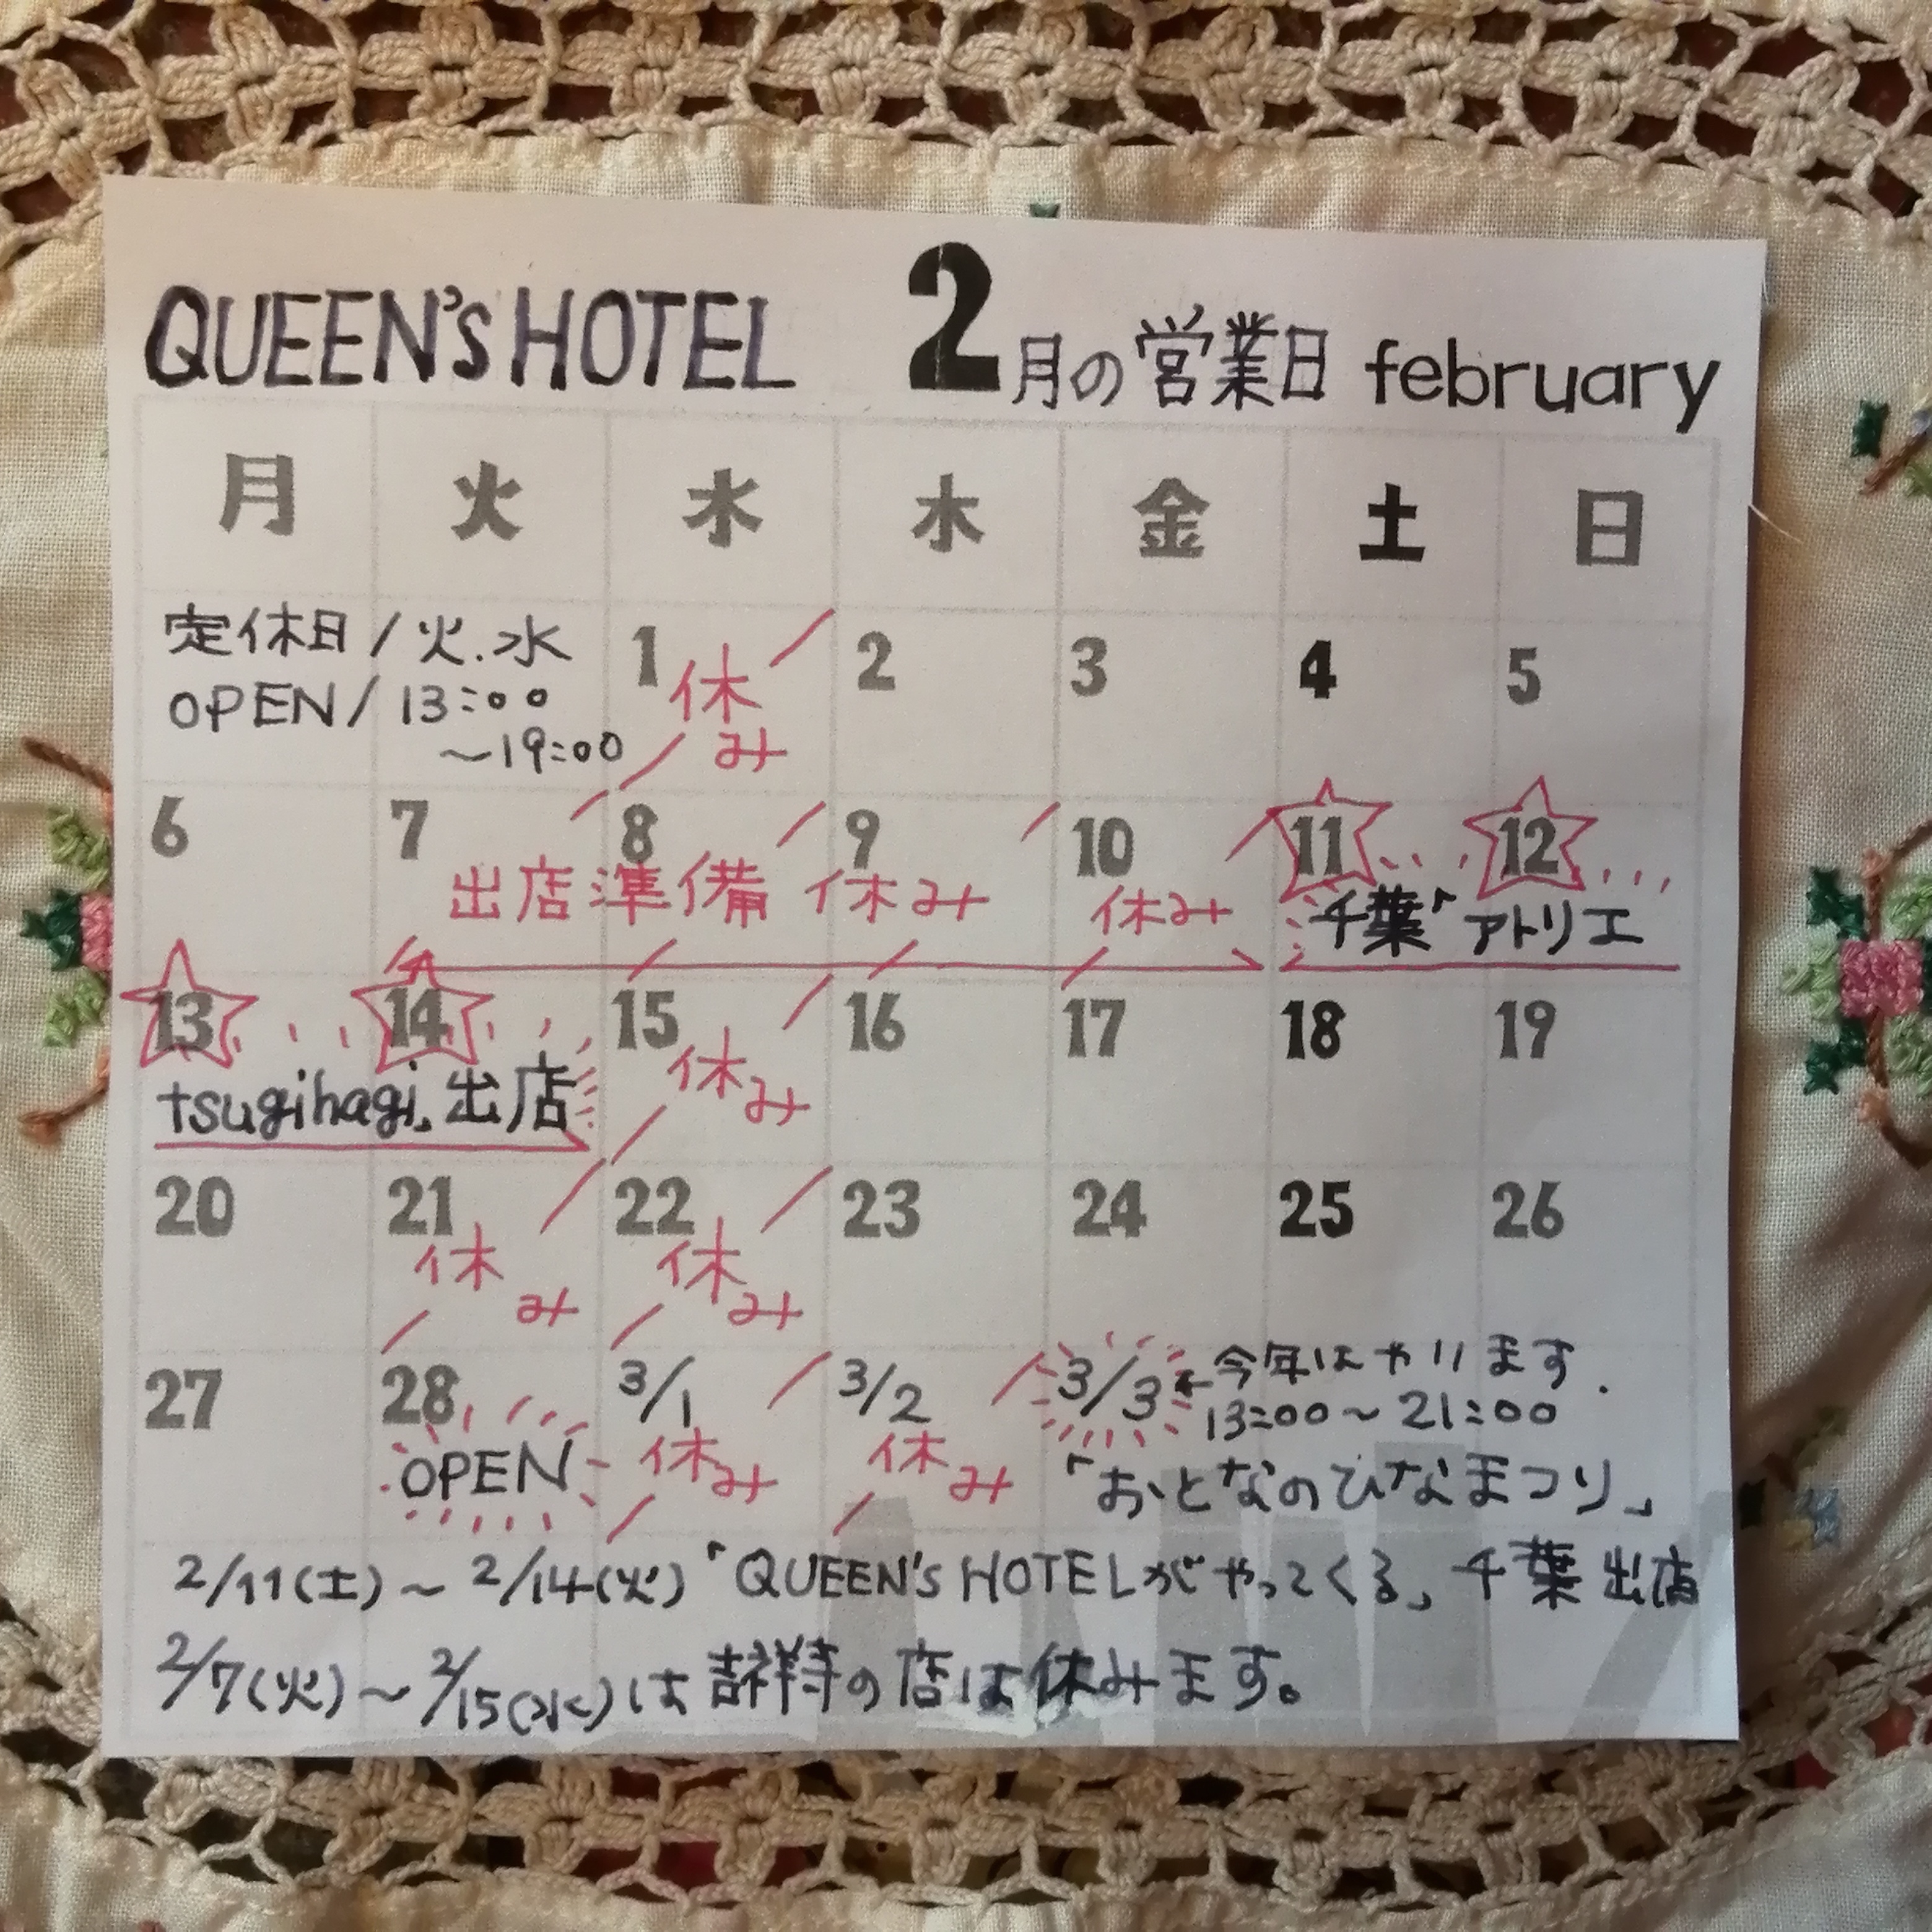 QUEEN'S HOTEL 2月の営業日 february
月 火 水 木 金 土 日
定休日/火.水
OPEN/13:00
～19:00
1 2 3 4 5
休み
6 7 8 9 10 11 12
出店準備 休み 休み 千葉「アトリエ
13 14 15 16 17 18 19
tsugihagi」出店 休み
20 21 22 23 24 25 26
休み 休み
27 28 3/1 3/2 3/3 ←今年はやります.
13:00～21:00
OPEN 休み 休み 「おとなのひなまつり」
2/11(土)～2/14(火)「QUEEN'S HOTELがやってくる」千葉出店
2/7(火)～2/15(水)は吉祥寺の店は休みます。